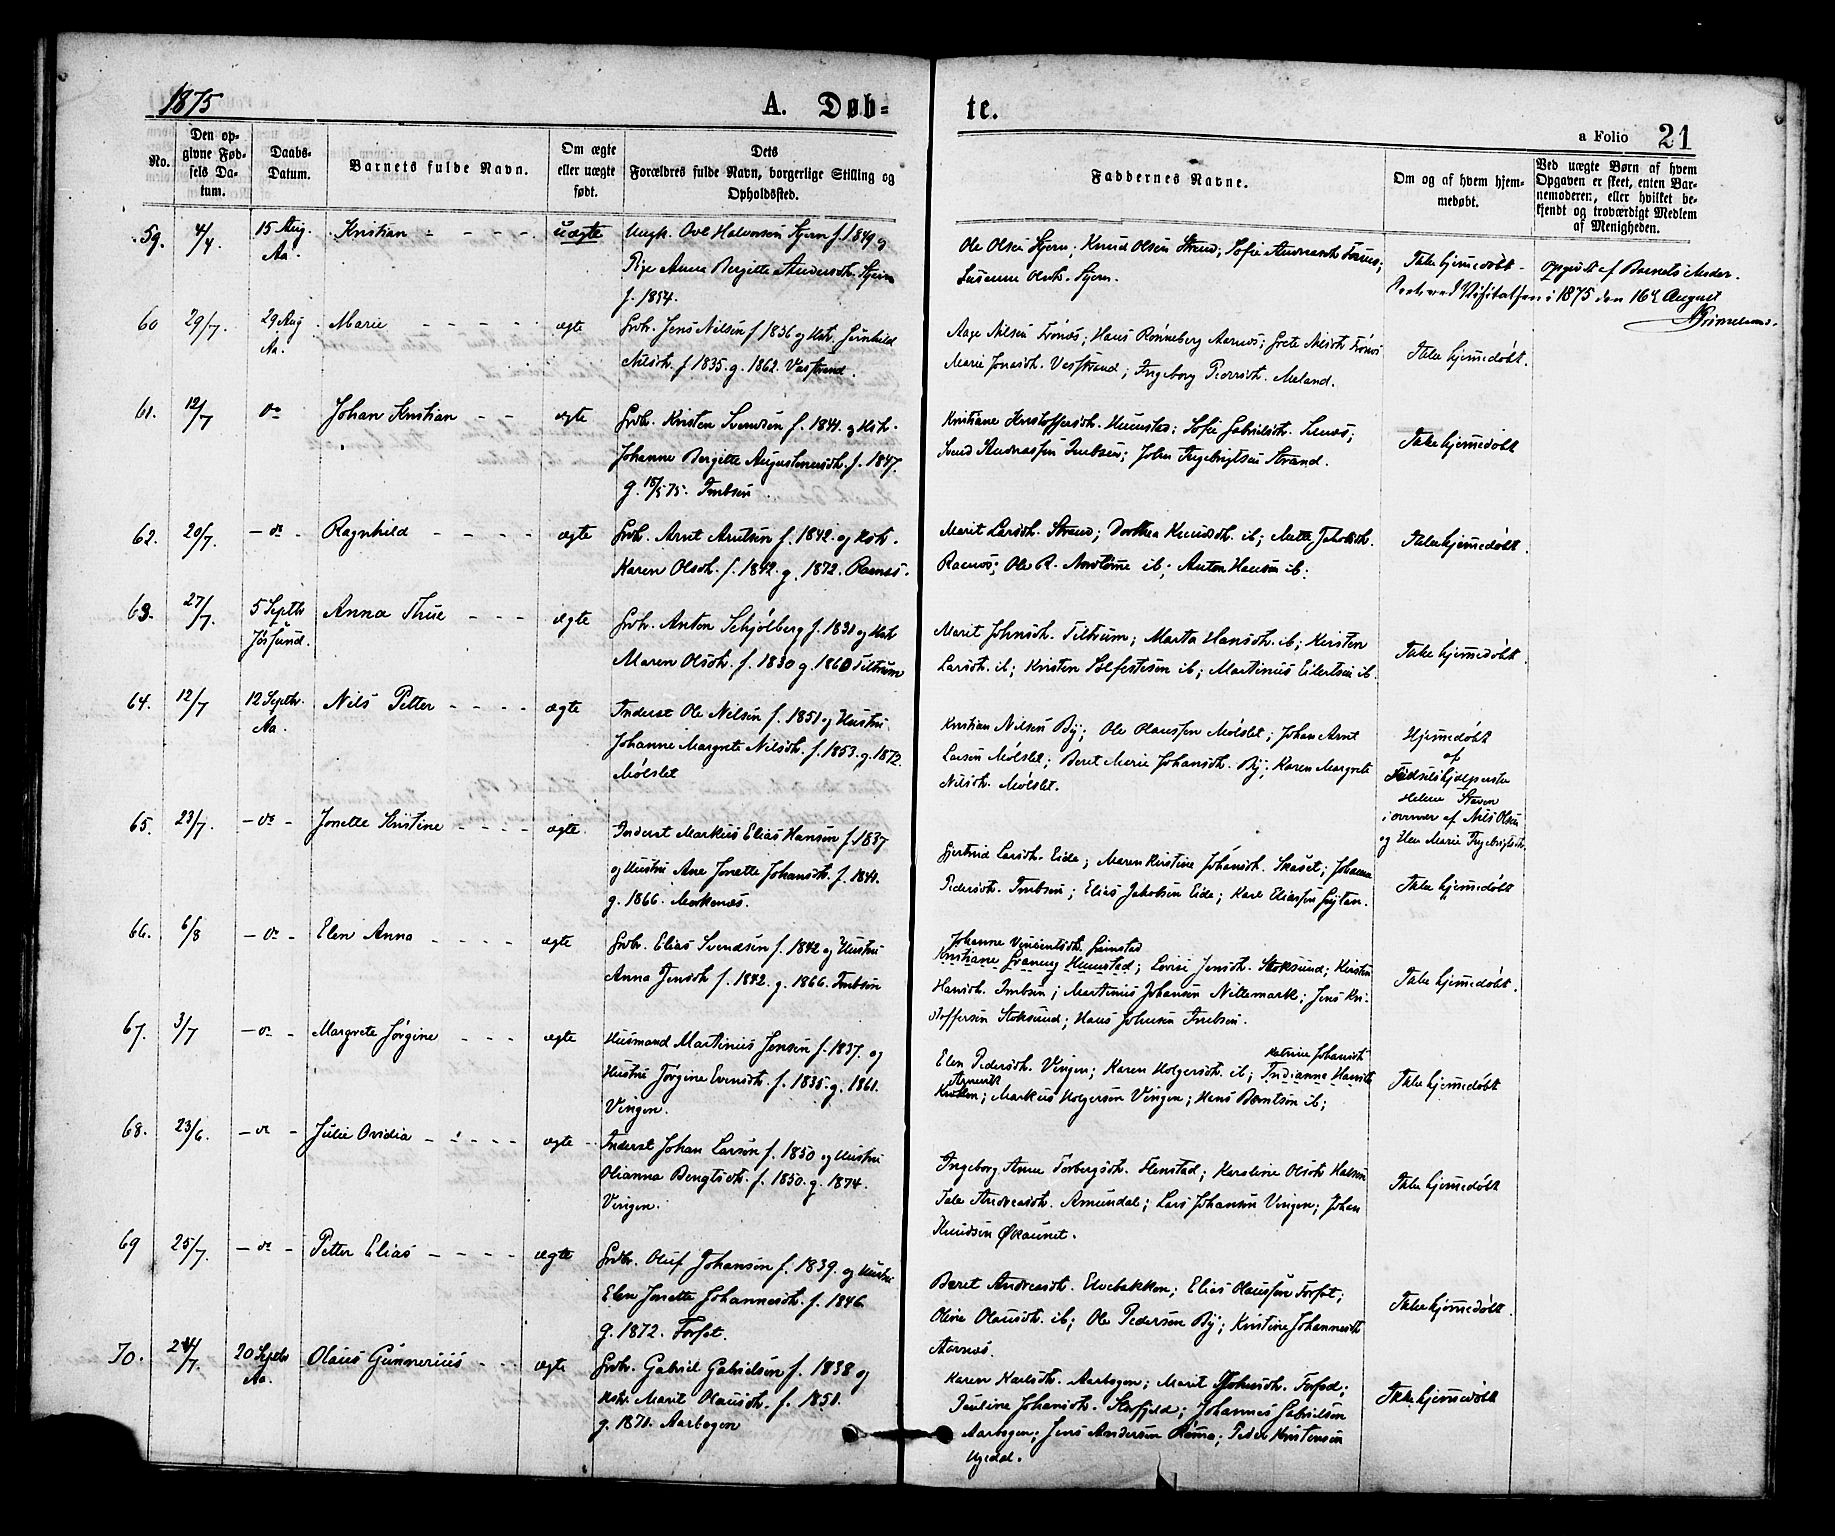 1875
A. Døb-
te.
a Folio 21
No.
Den op-
givne Fød-
sels Da-
tum.
Daabs-
Datum.
Barnets fulde Navn.
Om ægte
eller uægte
født.
Dets
Forældres fulde Navn, borgerlige Stilling og
Opholdssted.
Faddernes Navne.
Om og af hvem hjem-
medøbt.
Ved uægte Børn af hvem
Opgaven er skeet, enten Bar-
nemoderen, eller hvilket be-
kjendt og troværdigt Medlem
af Menigheden.
59. 4/4 15 Aug. Aa. Kristian uægte
Ungk. Ovl Halvorsen Stjern f. 1849 og
Pige Anne Bergitte Andersdtr. Stjern
f. 1854.
Ole Olsen Stjern; Knud Olsen Strand; Sofie Andreasdtr.
Susanne Olsdtr. Stjern.
Ikke hjemmedøbt
Opgivet af Barnets Moder.
Visitatsen i 1875 den 16de August
60 29/7. 29 Aug Aa. Marie ægte
Grdbr. Jens Nilsen f 1836 og Hst. Gunhild
Nilsdtr. f 1835. g. 1862. Vasstrand.
Aage Nilsen; Hans Rønneberg Aarnes; Grete Nilsdtr.
Marie Jonasdtr. Vasstrand; Ingeborg Pedersdtr. Meland.
Ikke hjemmedøbt.
61. 12/7 do Johan Kristian ægte
Grdbr. Kristen Svendsen f. 1841. og Hstr.
Johanne Bergitte Augustinusdtr. f. 1847.
g. 15/5 75. Imbsen
Kristiane Kristoffersdtr. Humstad; Sofie Gabrielsdtr.
Svend Andreassen Imbsen; John Ingebrigtsen Strand.
Ikke hjemmedøbt
62. 20/7. do Ragnhild ægte
Grdbr. Arnt Arntsen f. 1842. og Hstr.
Karen Olsdtr. f. 1842. g. 1872. Ramnes.
Marit Larsdtr. Strand; Dorthea Knudsdtr. ib; Mette Jakobsdtr.
Ramnes; Ole R. Nordtømme ib; Anton Hansen ib.
Ikke hjemmedøbt.
63. 27/7. 5 Septbr Jøssund. Anna Thue ægte
Grdbr. Anton Schjølberg f. 1831 og Hst.
Maren Olsdtr. f. 1830 g. 1860 Tiltrum
Marit Johnsdtr. Tiltrum; Marta Hansdtr. ib; Kirsten
Larsdtr. ib; Kristen Solfestsen ib; Martinus Eilertsen ib.
Ikke hjemmedøbt
64. 12/7 12 Septbr. Aa. Nils Petter ægte
Inderst Ole Nilsen f. 1851 og Hustru
Johanne Margrete Nilsdtr. f. 1853. g. 1872.
Mølslet
Kristian Nilsen By; Ole Olaussen Mølslet; Johan Arnt
Larsen Mølslet; Beret Marie Johansdtr. By; Karen Margrete
Nilsdtr. Mølslet.
Hjemmedøbt
af
Fødselshjælperske
Helene Staven
i overvær af Nils Olsen
og Marie Ingebrigtsdtr.
65. 23/7. do Jonette Kristine ægte.
Inderst Markus Elias Hansen f. 1837
og Hustru Ane Jonette Johansdtr. f. 1841.
g. 1866. Mørkenæs.
Gjertrud Larsdtr. Eide; Maren Kirstine Johansdtr. Skaset; Johanna
Pedersdtr. Imbsen; Elias Jakobsen Eide; Karl Eliassen
Ikke hjemmedøbt
66. 6/8 do Elen Anna ægte
Grdbr. Elias Svendsen f. 1842 og Hustru
Anna Jensdtr f. 1842. g. 1866. Imbsen
Johanne Vinsentsdtr. Grimstad
Kristiane Humstad; Lovise Jensdtr. Stoksund; Kirsten
Hansdtr. Imbsen; Martinus Johansen Niltemark; Jens Kri-
stoffersen Stoksund; Hans Johnsen Imbsen.
Ikke hjemmedøbt.
67. 3/7 do Margrete Jørgine ægte
Husmand Martinus Jensen f. 1837. og
Hustru Jørgine Evensdtr. f. 1835. g. 1861.
Vingen.
Katrine Johansdtr
Elen Pedersdtr. Vingen; Karen Holgersdtr. ib; Indianna Hansdtr
Krokan; Markus Holgersen Vingen; Hans Berntsen ib;
Ikke hjemmedøbt
68. 23/6. do Julie Ovidia ægte
Inderst Johan Larsen f. 1850 og Hustru
Olianna Bengtsdtr. f. 1850. g. 1874.
Vingen.
Ingeborg Anne Torbergsdtr. Flenstad; Karoline Olsdtr.
Andreasdtr. Amundal; Lars Johansen Vingen; Johan
Knudsen Økaunet.
Ikke hjemmedøbt
69 25/7. do Petter Elias ægte
Grdbr. Oluf Johansen f. 1839. og Hustru
Elen Jonette Johannesdtr. f. 1846
g. 1872. Forfot.
Beret Andreasdtr. Elvebakken; Elias Olaussen Forfot;
Oline Olausdtr. ib; Ole Pedersen By; Kristine Johannesdtr
Aarnes.
Ikke hjemmedøbt.
70. 24/7 20 Septbr Aa. Olaus Gunnerius ægte
Grdbr. Gabriel Gabrielsen f. 1838 og
Hstr. Marit Olausdtr. f. 1851.
g. 1871. Aarbogen
Karen Karlsdtr. Aarbogen; Marit Johnsdtr. Forfod;
Pauline Johansdtr. Storfjeld; Johannes Gabrielsen
Aarbogen; Jens Andersen Rømo; Peder Kristensen
Ugedal.
Ikke hjemmedøbt